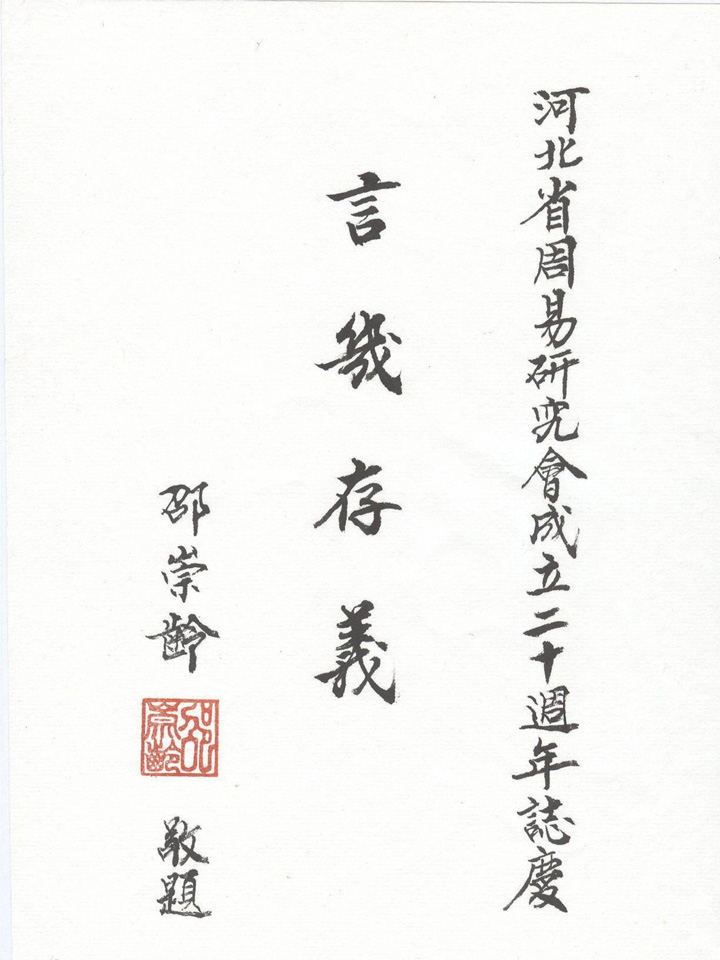 河北省周易研究會成立二十週年誌慶
言幾存義
邵崇齡
邵崇齡
敬題